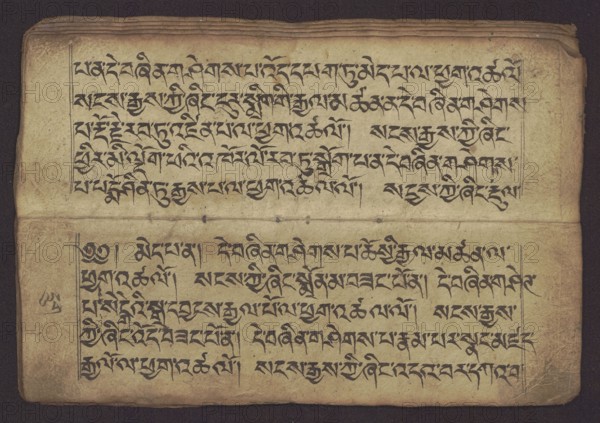 པ་ན་དེ་བཞིན་གཤེགས་པ་འོད་དཔག་ཏུ་མེད་པ་ལ་ཕྱག་འཚལ་ལོ
སངས་རྒྱས་ཀྱི་ཞིང་ རྒྱལ་མཚན་ན་དེ་བཞིན་གཤེགས་
པ་རྡོ་རྗེ་རབ་ཏུ་འཛིན་པ་ལ་ཕྱག་འཚལ་ལོ། སངས་རྒྱས་ཀྱི་ཞིང་
ཕྱིར་མི་ལྡོག་པའི་འཁོར་ལོ་རབ་ཏུ་སྒྲོག་པ་ན་དེ་བཞིན་གཤེགས་
པ་པདྨོ་ཤིན་ཏུ་རྒྱས་པ་ལ་ཕྱག་འཚལ་ལོ། སངས་ཀྱི་ཞིང་རྡུལ་
༄༅། མེད་པ་ན། དེ་བཞིན་གཤེགས་པ་ཆོས་ཀྱི་རྒྱལ་མཚན་ལ་
ཕྱག་འཚལ་ལོ། སངས་ཀྱི་ཞིང་སྒྲོན་མ་བཟང་པོ་ན། དེ་བཞིན་གཤེ
པ་སེང་གེའི་སྒྲ་དབྱངས་རྒྱལ་པོ་ལ་ཕྱག་འཚལ་ལོ། སངས་རྒྱས་
ཀྱི་ཞིང་འོད་བཟང་པོ་ན། དེ་བཞིན་གཤེགས་པ་རྣམ་པར་སྣང་མཛད་
རྒྱལ་པོ་ལ་ཕྱག་འཚལ་ལོ། སངས་རྒྱས་ཀྱི་ཞིང་འདའ་བར་དཀའ་བ